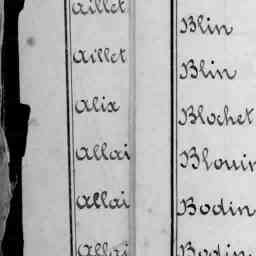 Aillet
Blin
Aillet
Blin
Alix
Blochet
Allai
Blouin
Allai
Bodin
Allai
Bodin